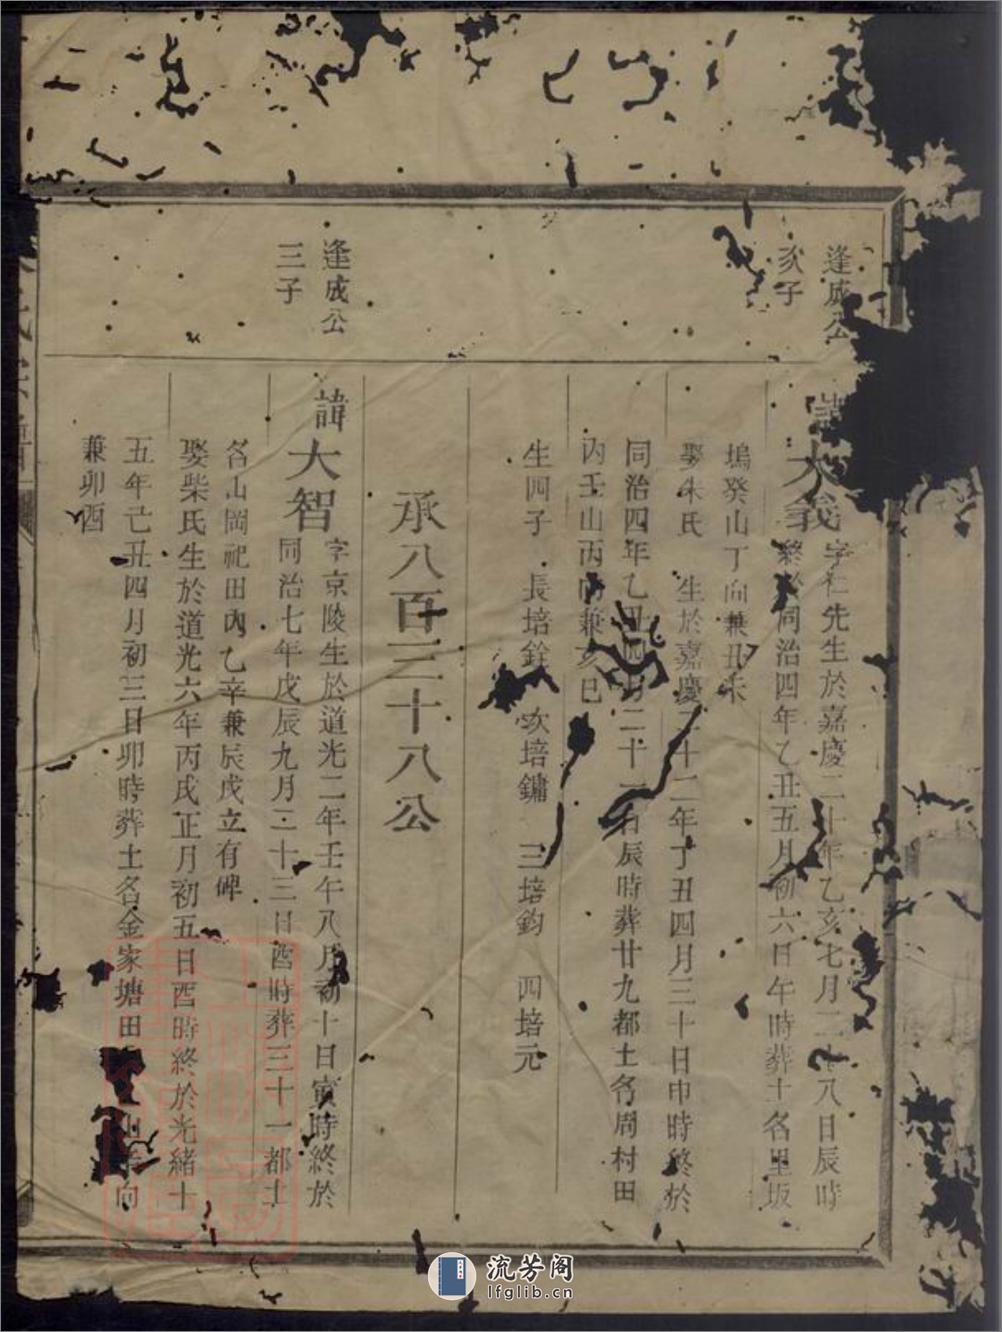 逢成公
次子
諱大義
字仁先生於嘉慶二十年乙亥七月二十八日辰時
終於同治四年乙丑五月初六日午時葬土名里坂
塢癸山丁向兼丑未
娶朱氏 生於嘉慶二十二年丁丑四月三十日申時終於
同治四年乙丑四月二十一日辰時葬廿九都土名周村田
內壬山丙向兼亥巳
生四子 長培銓 次培鏞 三培鈞 四培元
承八百三十八公
逢成公
三子
諱大智
字京陵生於道光二年壬午八月初十日寅時終於
同治七年戊辰九月二十三日酉時葬三十一都土
名山岡祀田內乙辛兼辰戌立有碑
娶柴氏生於道光六年丙戌正月初五日酉時終於光緒十
五年己丑四月初三日卯時葬土名金家塘田山向
兼卯酉
流芳阁
lfglib.cn